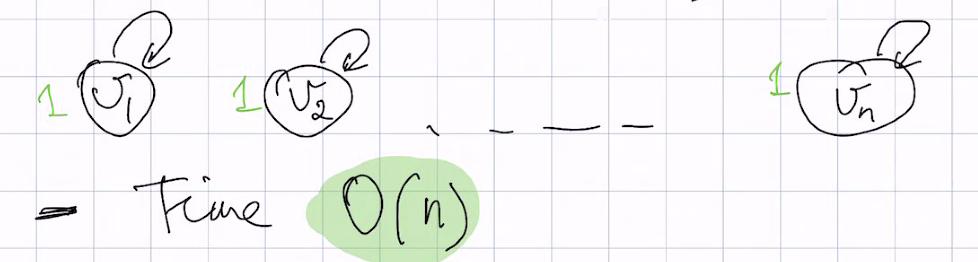 1 v₁ 1 v₂ - - - - 1 vₙ
- Time O(n)